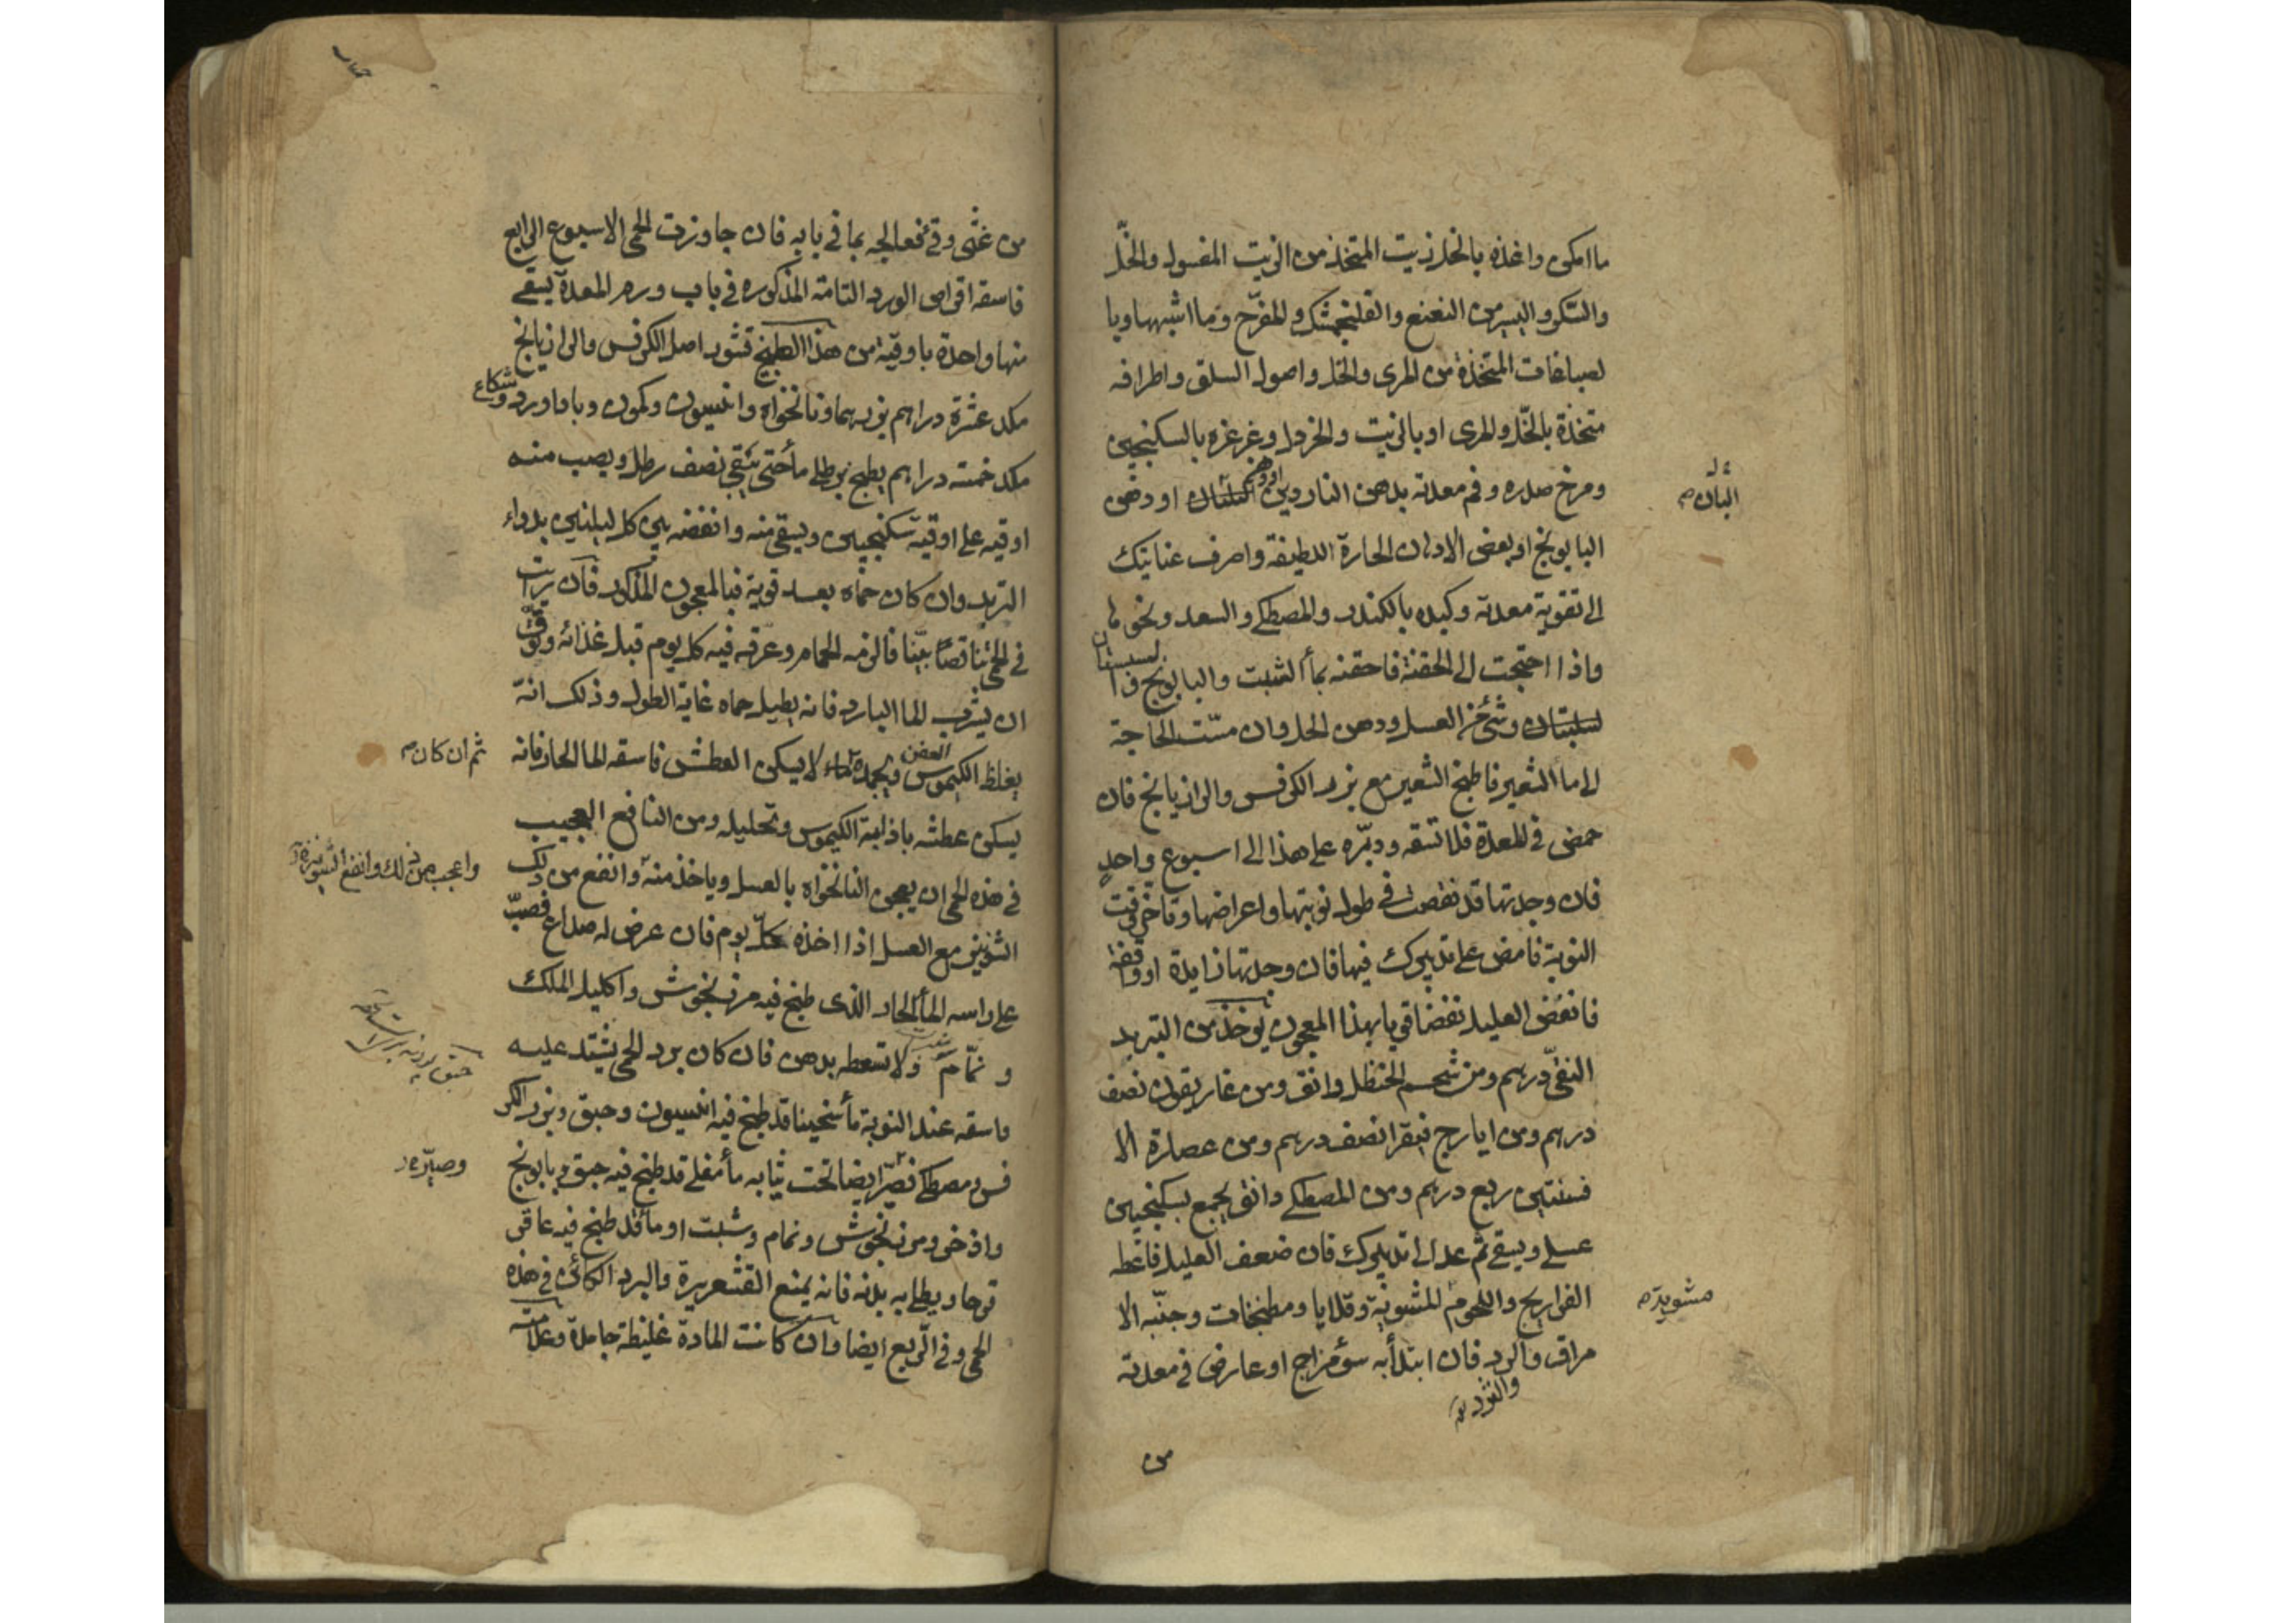 ما امكن واغذه بالخل زيت المتخذ من الزيت المغسول والخلّ
والسكر واليسير من النعنع والفلنجمشك والمفرّح وما اشبهها وبا
لصباغات المتخذة من المرى والخل واصول السلق واطرافه
متخذة بالخلّ والمرى او بالزيت والخردل وغرغره بالسكنجبين
ومرخ صدره وفم معدته بدهن الناردين او دهن
البان
البابونج او بعض الادهان الحارة اللطيفة واصرف عنايتك
الى تقوية معدته وكبده بالكندر والمصطكى والسعد ونحوها
واذا احتجت الى الحقنة فاحقنه بماء الشبت والبابونج وا
لسبستان وشئ من العسل ودهن الخل وان مسّت الحاجة
الى ماء الشعير فاطبخ الشعير مع بزر الكرفس والرازيانج فان
حمض فى المعدة فلا تسقه ودبّره على هذا الى اسبوع واحدٍ
فان وجدتها قد نقصت فى طول نوبتها واعراضها وتأخر وقت
النوبة فامض على تدبيرك فيها فان وجدتها زايدة او واقفة
فانفض العليل نفضا قويا بهذا المعجون يؤخذ من التربد
النقىّ درهم ومن شحم الحنظل دانق ومن غاريقون نصف
درهم ومن ايارج فيقرا نصف درهم ومن عصارة الا
فسنتين ربع درهم ومن المصطكى دانق يجمع بسكنجبين
عسلى ويسقى ثم عد الى تدبيرك فان ضعف العليل فاعطه
الفراريج واللحوم المشوية وقلايا ومطنجات وجنّبه الا
مشوية
مراق والثرد فان ابتدأ به سوء مزاج او عارض فى معدته
من
من غثى وقئ فعالجه بما فى بابه فان جاوزت الحمى الاسبوع الرابع
فاسقه اقراص الورد التامة المذكورة فى باب ورم المعدة يسقى
منها واحدة باوقية من هذا الطبيخ قشور اصل الكرفس والرازيانج
مكد عشرة دراهم بزريهما ونانخواه وانيسون وكمون وباداورد وشكاعى
مكد خمسة دراهم يطبخ برطلى ماء حتى يبقى نصف رطل ويصب منه
اوقية على اوقية سكنجبين ويسقى منه وانفضه بين كل ليلتين بدواء
التربد وان كان حماه بعد قوية فبالمعجون المذكور فان رايت
فى الحمى تناقصًا بيّنا فالزمه الحمام وعرقه فيه كل يوم قبل غذائه وتوقّ
ان يشرب الما البارد فانه يطيل حماه غاية الطول وذلك انه
يغلظ الكيموس العفن ويجمده لا يسكن العطش فاسقه الما الحار فانه
ثم ان كان
يسكن عطشه باذابة الكيموس وتحليله ومن النافع العجيب
فى هذه الحمى ان يعجن النانخواه بالعسل وياخذ منه وانفع من ذلك
واعجب من ذلك وانفع الشونيز
الشونيز مع العسل اذا اخذه كلّ يوم فان عرض له صداع فصبّ
على راسه الماء الحار الذى طبخ فيه مرزنجوش واكليل الملك
ونمّام ولا تسعطه بدهن فان كان برد الحمى يشتد عليه
فاسقه عند النوبة ماء سخينا قد طبخ فيه انيسون وحبق وبزر الكر
فس ومصطكى فصيّر ايضا تحت ثيابه ماء مغلى قد طبخ فيه حبق وبابونج
وصيّره
واذخر ومرزنجوش ونمام وشبت او ماء قد طبخ فيه عاقر
قرحا ويطلى به بدنه فانه يمنع القشعريرة والبرد الكائن فى هذه
الحمى وفى الربع ايضا وان كانت المادة غليظة جامدة وعلامته